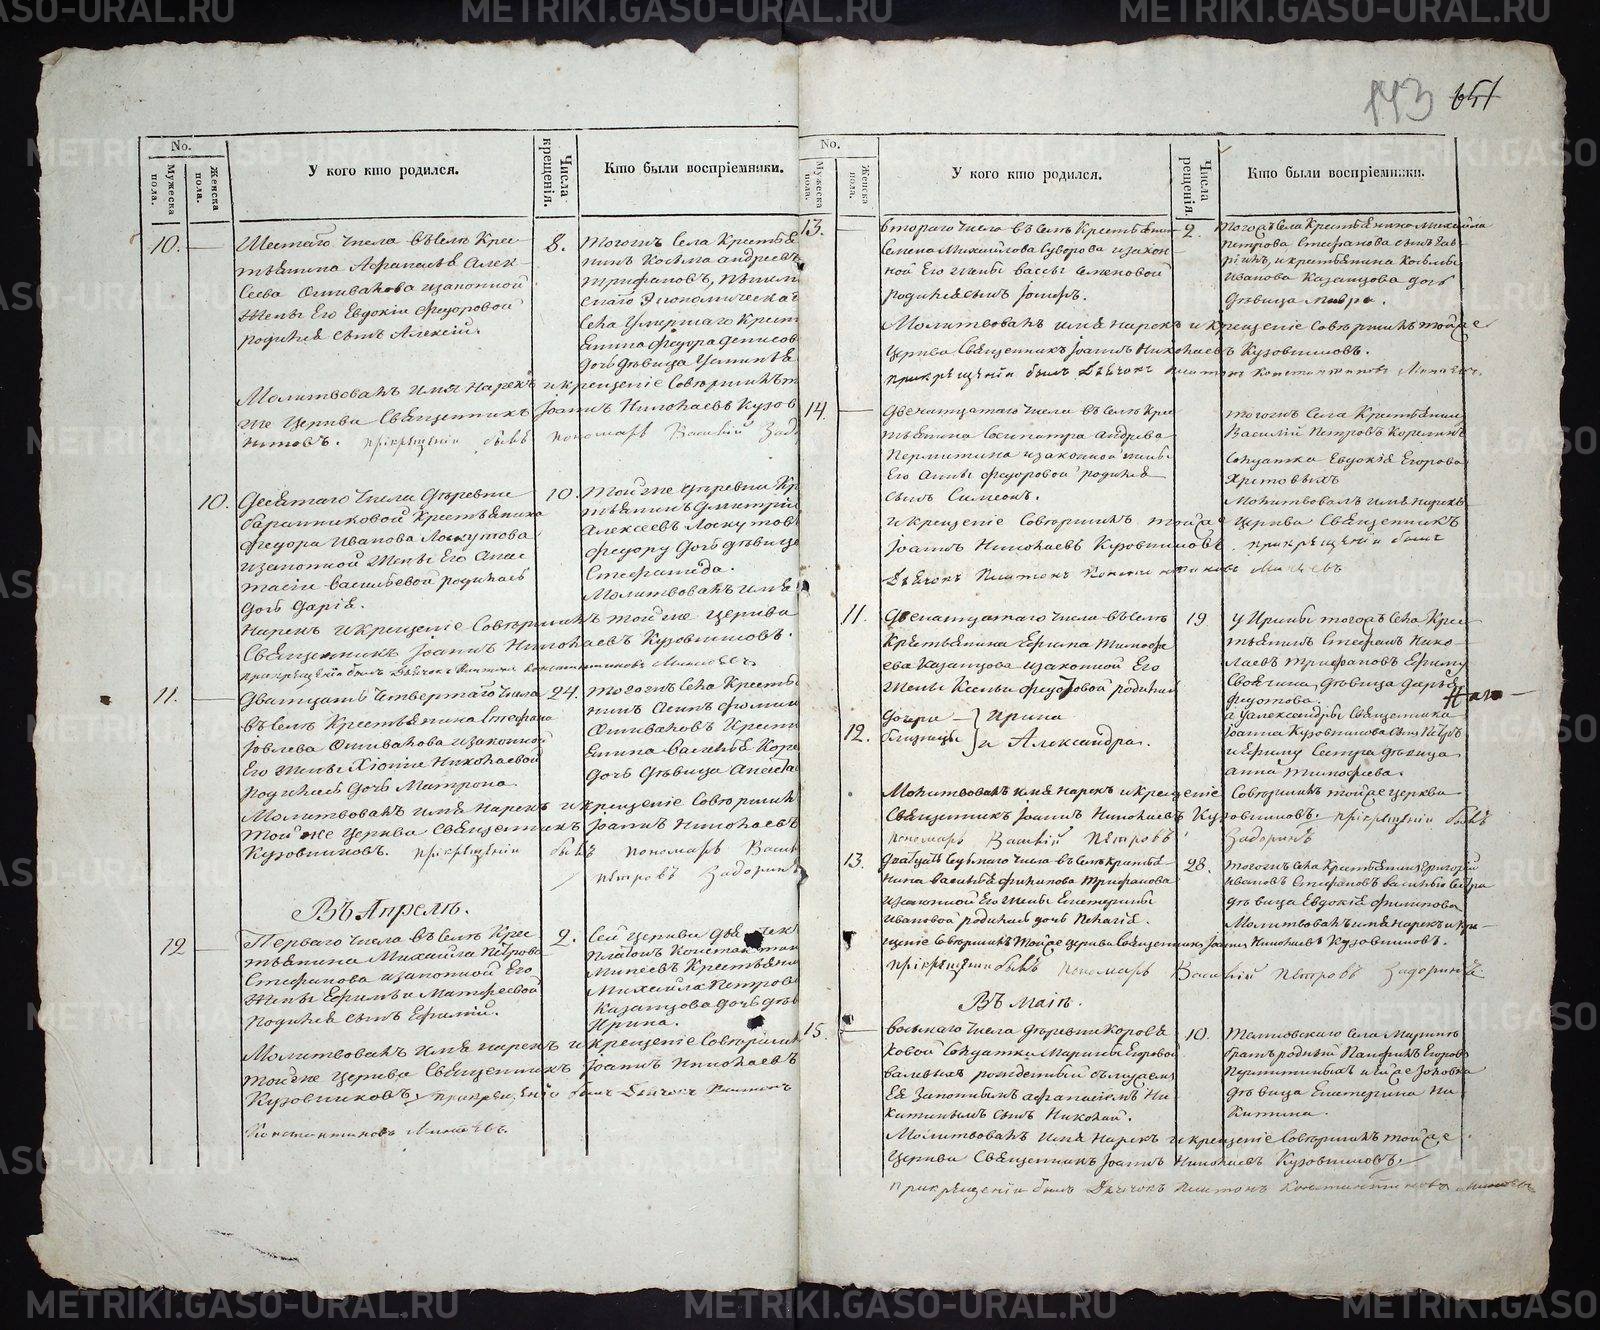 143 651
No.
Мужеска пола.
Женска пола.
У кого кто родился.
Числа крещенія.
Кто были воспріемники.
10.
Шестаго числа въ селѣ Крес-
тьянина Афанасья Алек-
сеева Ошивалова и законной
Жены Его Евдокіи Федоровой
родился сынъ Алексій.
8.
тогожъ Села Крестья
нинъ Косьма Андреевъ
Трифановъ,
Села Умершаго Крест
янина Федора Денисов
дочь дѣвица
Молитвовалъ Имя Нарекъ и крещеніе Совершилъ т
же Церкви Священникъ Іоаннъ Николаевъ Кузов
никовъ. при крещеніи былъ пономарь Василій Зад
10.
Десятаго Числа Деревни
Баранниковой Крестьянина
Федора Иванова Лоскутова
и законной Жены Его Анас
тасіи Васильевой родилась
дочь Дарія.
10.
Той же деревни Кр
тьянинъ Дмитрій
Алексеевъ Лоскутовъ
Федору дочь дѣвица
Степанида.
Молитвовалъ имя
Нарекъ и крещеніе Совершилъ той же Церкви
Священникъ Іоаннъ Николаевъ Кузовниковъ.
при крещеніи былъ Дьячокъ Платонъ Константиновъ Минеевъ
11.
Двадцать Четвертаго числа
въ селѣ Крестьянина Стефана
Іовлева Ошивалова и законной
Его Жены Хіоніи Николаевой
родилась дочь Матрона
24.
тогожъ Села Крестья
нинъ
Ошиваловъ Крест
янина Василья Кор
дочь дѣвица
Молитвовалъ имя Нарекъ и крещеніе Совершилъ
той же Церкви Священникъ Іоаннъ Николаевъ
Кузовниковъ. при крещеніи былъ пономарь Васи
Петровъ Задоринъ
Въ Апрелѣ.
12
Перваго числа въ селѣ Крес-
тьянина Михаила Петрова
Стефанова и законной Его
Жены Ефимьи Матфеевой
родился сынъ Ефимій.
2.
Сей Церкви Дьячекъ
Платонъ Константин
Минеевъ Крестьяни
Михаила Петрова
Казанцова дочь дѣв
Ирина.
Молитвовалъ Имя нарекъ и Крещеніе Совершилъ
той же Церкви Священникъ Іоаннъ Николаевъ
Кузовниковъ, при крещеніи былъ Дьячокъ Платонъ
Константиновъ Минѣевъ.
No.
Мужеска пола.
Женска пола.
У кого кто родился.
Числа рещенія.
Кто были воспріемники.
13.
втораго числа въ селѣ Крестьянина
Семена Михайлова Суворова и закон
ной Его жены Вассы Семеновой
родился сынъ Іосифъ.
2.
тогожъ Села Крестьянина Михайла
Петрова Стефанова сынъ Гав-
рилъ, и крестьянина Козьмы
Иванова Казанцова дочь
дѣвица Мавра.
Молитвовалъ имя нарекъ и крещеніе Совершилъ той же
Церкви Священникъ Іоаннъ Николаевъ Кузовниковъ.
при крещеніи былъ Дьячокъ Платонъ Константиновъ Минѣевъ.
14.
Двенатцатаго числа въ селѣ Крес
тьянина Сосипатра Андреева
Пермитина и законной жены
Его Анны Федоровой родился
сынъ Симеонъ.
тогожъ Села Крестьянинъ
Василій Петровъ Корелинъ
Солдатка Евдокія Егорова
Христовыхъ
Молитвовалъ имя нарекъ
и крещеніе Совершилъ тойже Церкви Священникъ
Іоаннъ Николаевъ Кузовниковъ. при крещеніи былъ
Дьячокъ Платонъ Константиновъ Минѣевъ
11.
Двенатцатаго числа въ селѣ
Крестьянина Ефима Тимофе
ева Казанцова и законной Его
Жены Ксеньи Федотовой родились
дочери
близнецы
Ирина
и Александра.
12.
19
у Ирины тогожъ Села Крес
тьянинъ Стефанъ Нико
лаевъ Трифановъ Ефиму
Своячина, дѣвица Дарья
Федотова.
а у Александры Священника
Іоанна Кузовникова сынъ Петръ
и Ефиму Сестра дѣвица
Анна Тимофеева.
Молитвовалъ имя нарекъ и крещеніе Совершилъ тойже Церкви
Священникъ Іоаннъ Николаевъ Кузовниковъ. при крещеніи былъ
пономарь Василій Петровъ Задоринъ
13.
Двадцать Седьмаго числа въ селѣ крестья
нина Василья Филипова Трифанова
и законной Его жены Екатерины
Ивановой родилась дочь Пелагія.
28.
тогожъ Села Крестьянинъ Григорій
Ивановъ Стефановъ Василью Сестра
дѣвица Евдокія Филипова
Молитвовалъ имя нарекъ и кре-
щеніе Совершилъ тойже церкви Священникъ Іоаннъ Николаевъ Кузовниковъ.
при крещеніи былъ пономарь Василій Петровъ Задоринъ.
Въ Маіѣ.
15.
восьмаго числа деревни Коровя
ковой Солдатки Марины Егоровой
рожденный
Ея Законнымъ Афанасіемъ Ни
китинымъ сынъ Николай.
10.
Села Маринѣ
братъ родный Панфилъ Егоровъ
дѣвица Екатерина Ни
китина.
Молитвовалъ имя нарекъ и крещеніе Совершилъ тойже
Церкви Священникъ Іоаннъ Николаевъ Кузовниковъ.
при крещеніи былъ Дьячокъ Платонъ Константиновъ Минѣевъ
METRIKI.GASO-URAL.RU